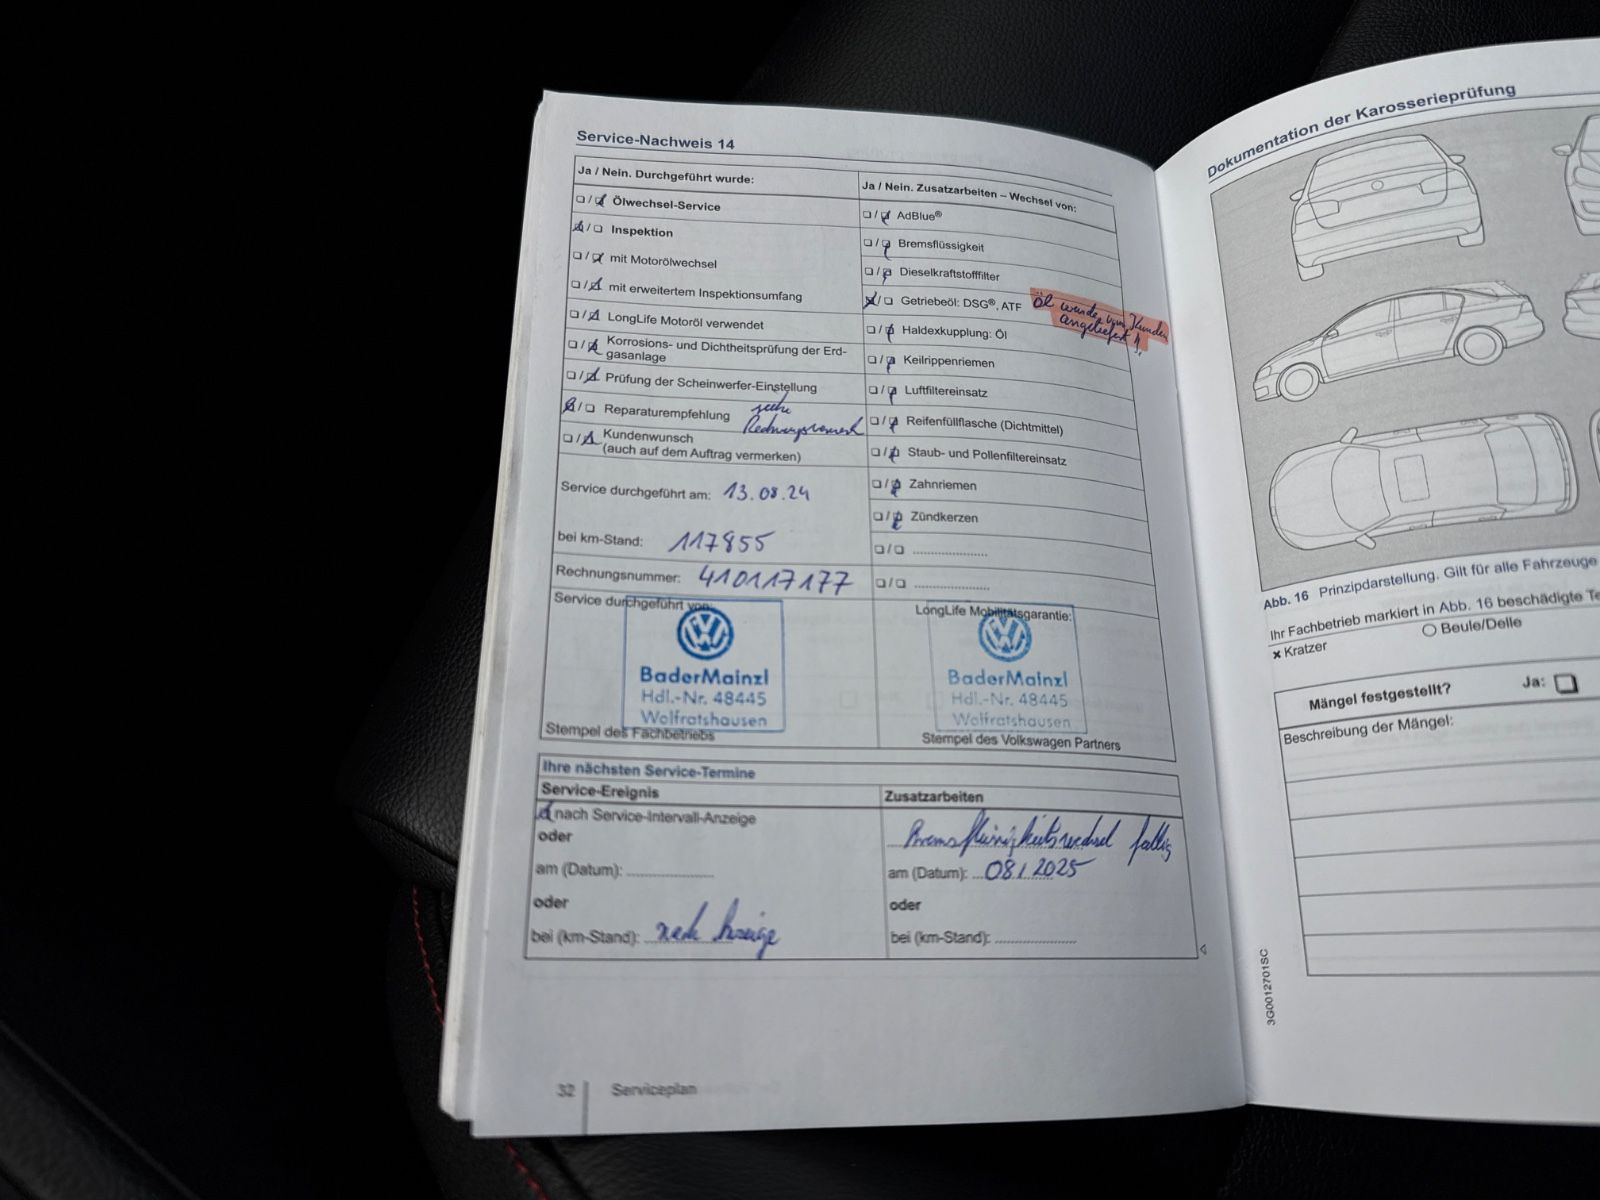 Service-Nachweis 14
Ja / Nein. Durchgeführt wurde:
Ölwechsel-Service
Inspektion
mit Motorölwechsel
mit erweitertem Inspektionsumfang
LongLife Motoröl verwendet
Korrosions- und Dichtheitsprüfung der Erd-
gasanlage
Prüfung der Scheinwerfer-Einstellung
Reparaturempfehlung siehe
Rechnungsvermerk
Kundenwunsch
(auch auf dem Auftrag vermerken)
Service durchgeführt am: 13.08.24
bei km-Stand: 117855
Rechnungsnummer: 410117177
Service durchgeführt von:
BaderMainzl
Hdl.-Nr. 48445
Wolfratshausen
Stempel des Fachbetriebs
Ja / Nein. Zusatzarbeiten – Wechsel von:
AdBlue®
Bremsflüssigkeit
Dieselkraftstofffilter
Getriebeöl: DSG®, ATF Öl wurde vom Kunden
angeliefert!
Haldexkupplung: Öl
Keilrippenriemen
Luftfiltereinsatz
Reifenfüllflasche (Dichtmittel)
Staub- und Pollenfiltereinsatz
Zahnriemen
Zündkerzen
LongLife Mobilitätsgarantie:
BaderMainzl
Hdl.-Nr. 48445
Wolfratshausen
Stempel des Volkswagen Partners
Ihre nächsten Service-Termine
Service-Ereignis
nach Service-Intervall-Anzeige
oder
am (Datum):
oder
bei (km-Stand): nach Anzeige
Zusatzarbeiten
Bremsflüssigkeitswechsel fällig
am (Datum): 08.2025
oder
bei (km-Stand):
32 Serviceplan
Dokumentation der Karosserieprüfung
Abb. 16 Prinzipdarstellung. Gilt für alle Fahrzeuge
Ihr Fachbetrieb markiert in Abb. 16 beschädigte
Kratzer Beule/Delle
Mängel festgestellt? Ja:
Beschreibung der Mängel:
3G0012701SC